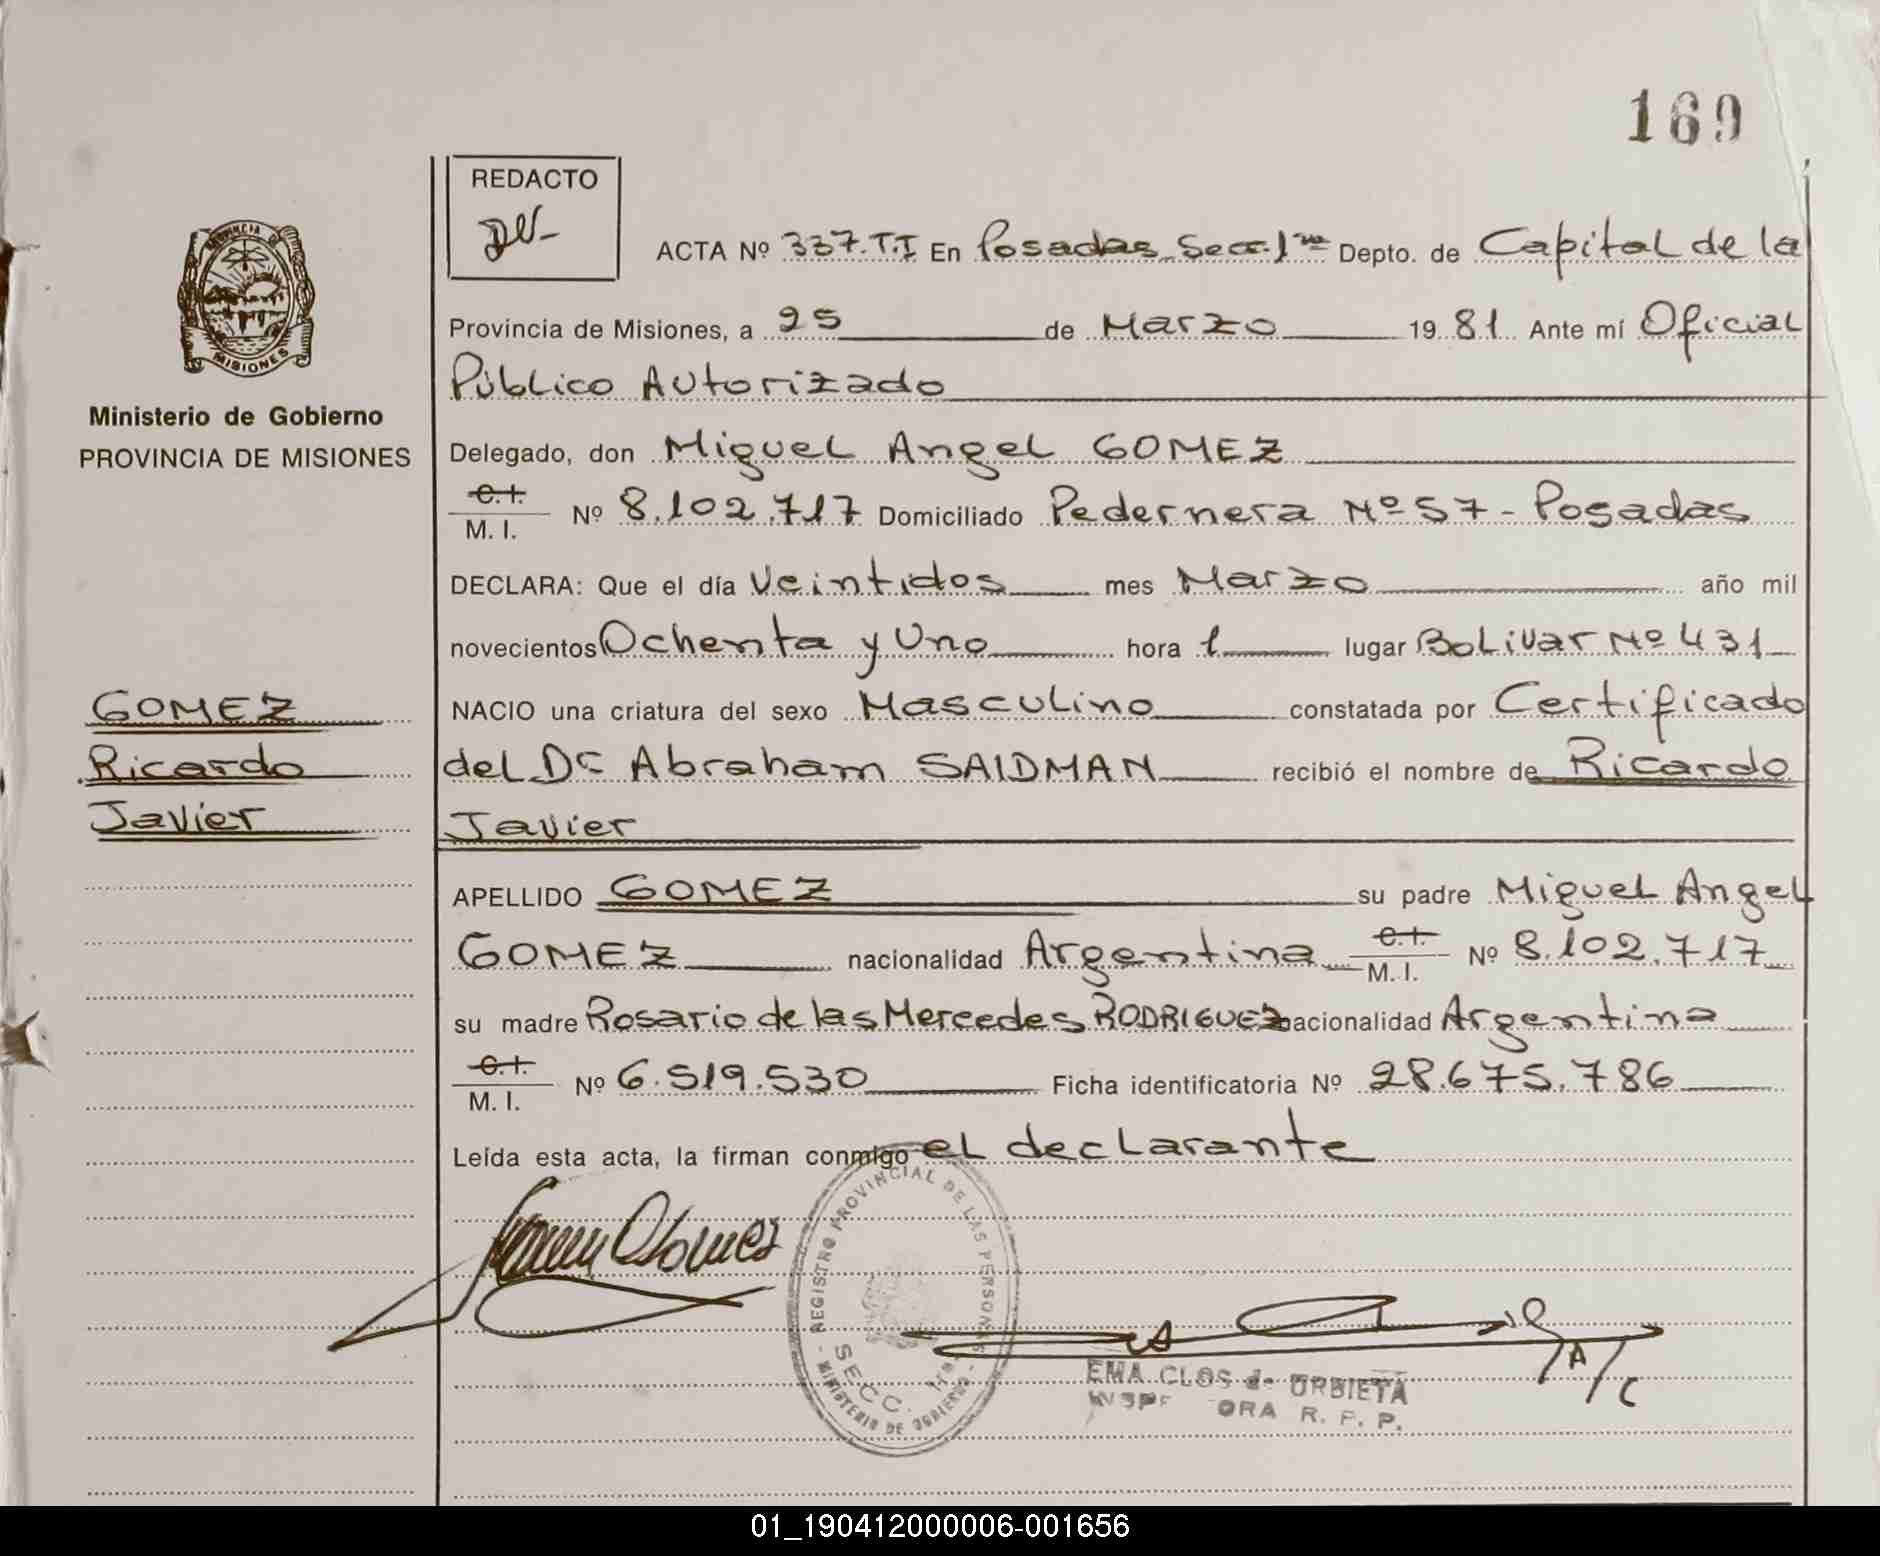 169
REDACTO
ACTA Nº 337.T.I En Posadas Secc. 1ra Depto. de Capital de la
Provincia de Misiones, a 25 de Marzo 1981 Ante mí Oficial
Público Autorizado
PROVINCIA DE
MISIONES
Ministerio de Gobierno
PROVINCIA DE MISIONES
Delegado, don Miguel Angel GOMEZ
C.I.
M. I. Nº 8.102.717 Domiciliado Pedernera Nº 57 - Posadas
DECLARA: Que el día Veintidos mes Marzo año mil
novecientos Ochenta y Uno hora 1 lugar Bolivar Nº 431
GOMEZ
Ricardo
Javier
NACIO una criatura del sexo Masculino constatada por Certificado
del Dr Abraham SAIDMAN recibió el nombre de Ricardo
Javier
APELLIDO GOMEZ su padre Miguel Angel
GOMEZ nacionalidad Argentina C.I. M. I. Nº 8.102.717
su madre Rosario de las Mercedes RODRIGUEZ nacionalidad Argentina
C.I.
M. I. Nº 6.519.530 Ficha identificatoria Nº 28.675.786
Leída esta acta, la firman conmigo el declarante
REGISTRO PROVINCIAL DE LAS PERSONAS
SECC. 1ra.
MINISTERIO DE GOBIERNO
EMA CLOS de URBIETA
R. P. P.
A/C
01_190412000006-001656